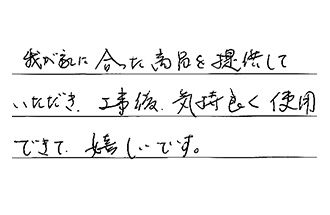 我が家に合った商品を提供して
いただき、工事後、気持良く使用
できて、嬉しいです。